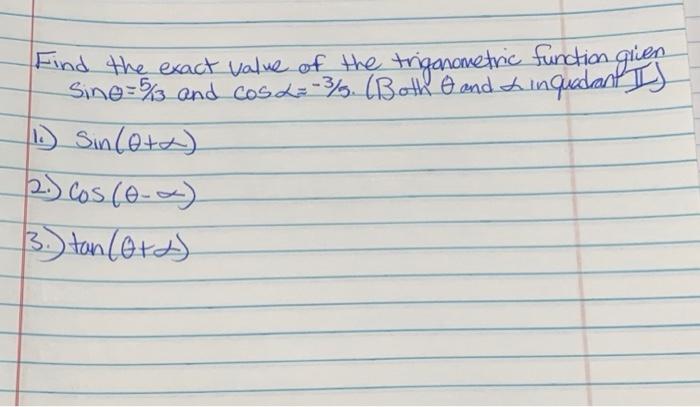 Find the exact value of the trigonometric function given
Sinθ=5/13 and cosα=-3/5. (Both θ and α in quadrant II)
1.) Sin(θ+α)
2.) Cos(θ-α)
3.) tan(θ+α)